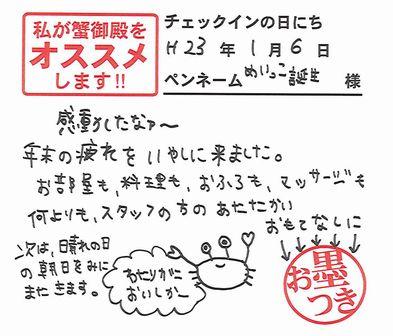 私が蟹御殿を
オススメ
します!!
チェックインの日にち
H23年1月6日
ペンネーム めいっこ誕生 様
感動したなァ〜
年末の疲れをいやしに来ました。
お部屋も、料理も、おふろも、マッサージも
何よりも、スタッフの方のあたたかい
おもてなしに
↓↓↓↓↓↓
お墨つき
次は、日晴れの日
の朝日をみに
またきます。
わたりがに
おいしか〜